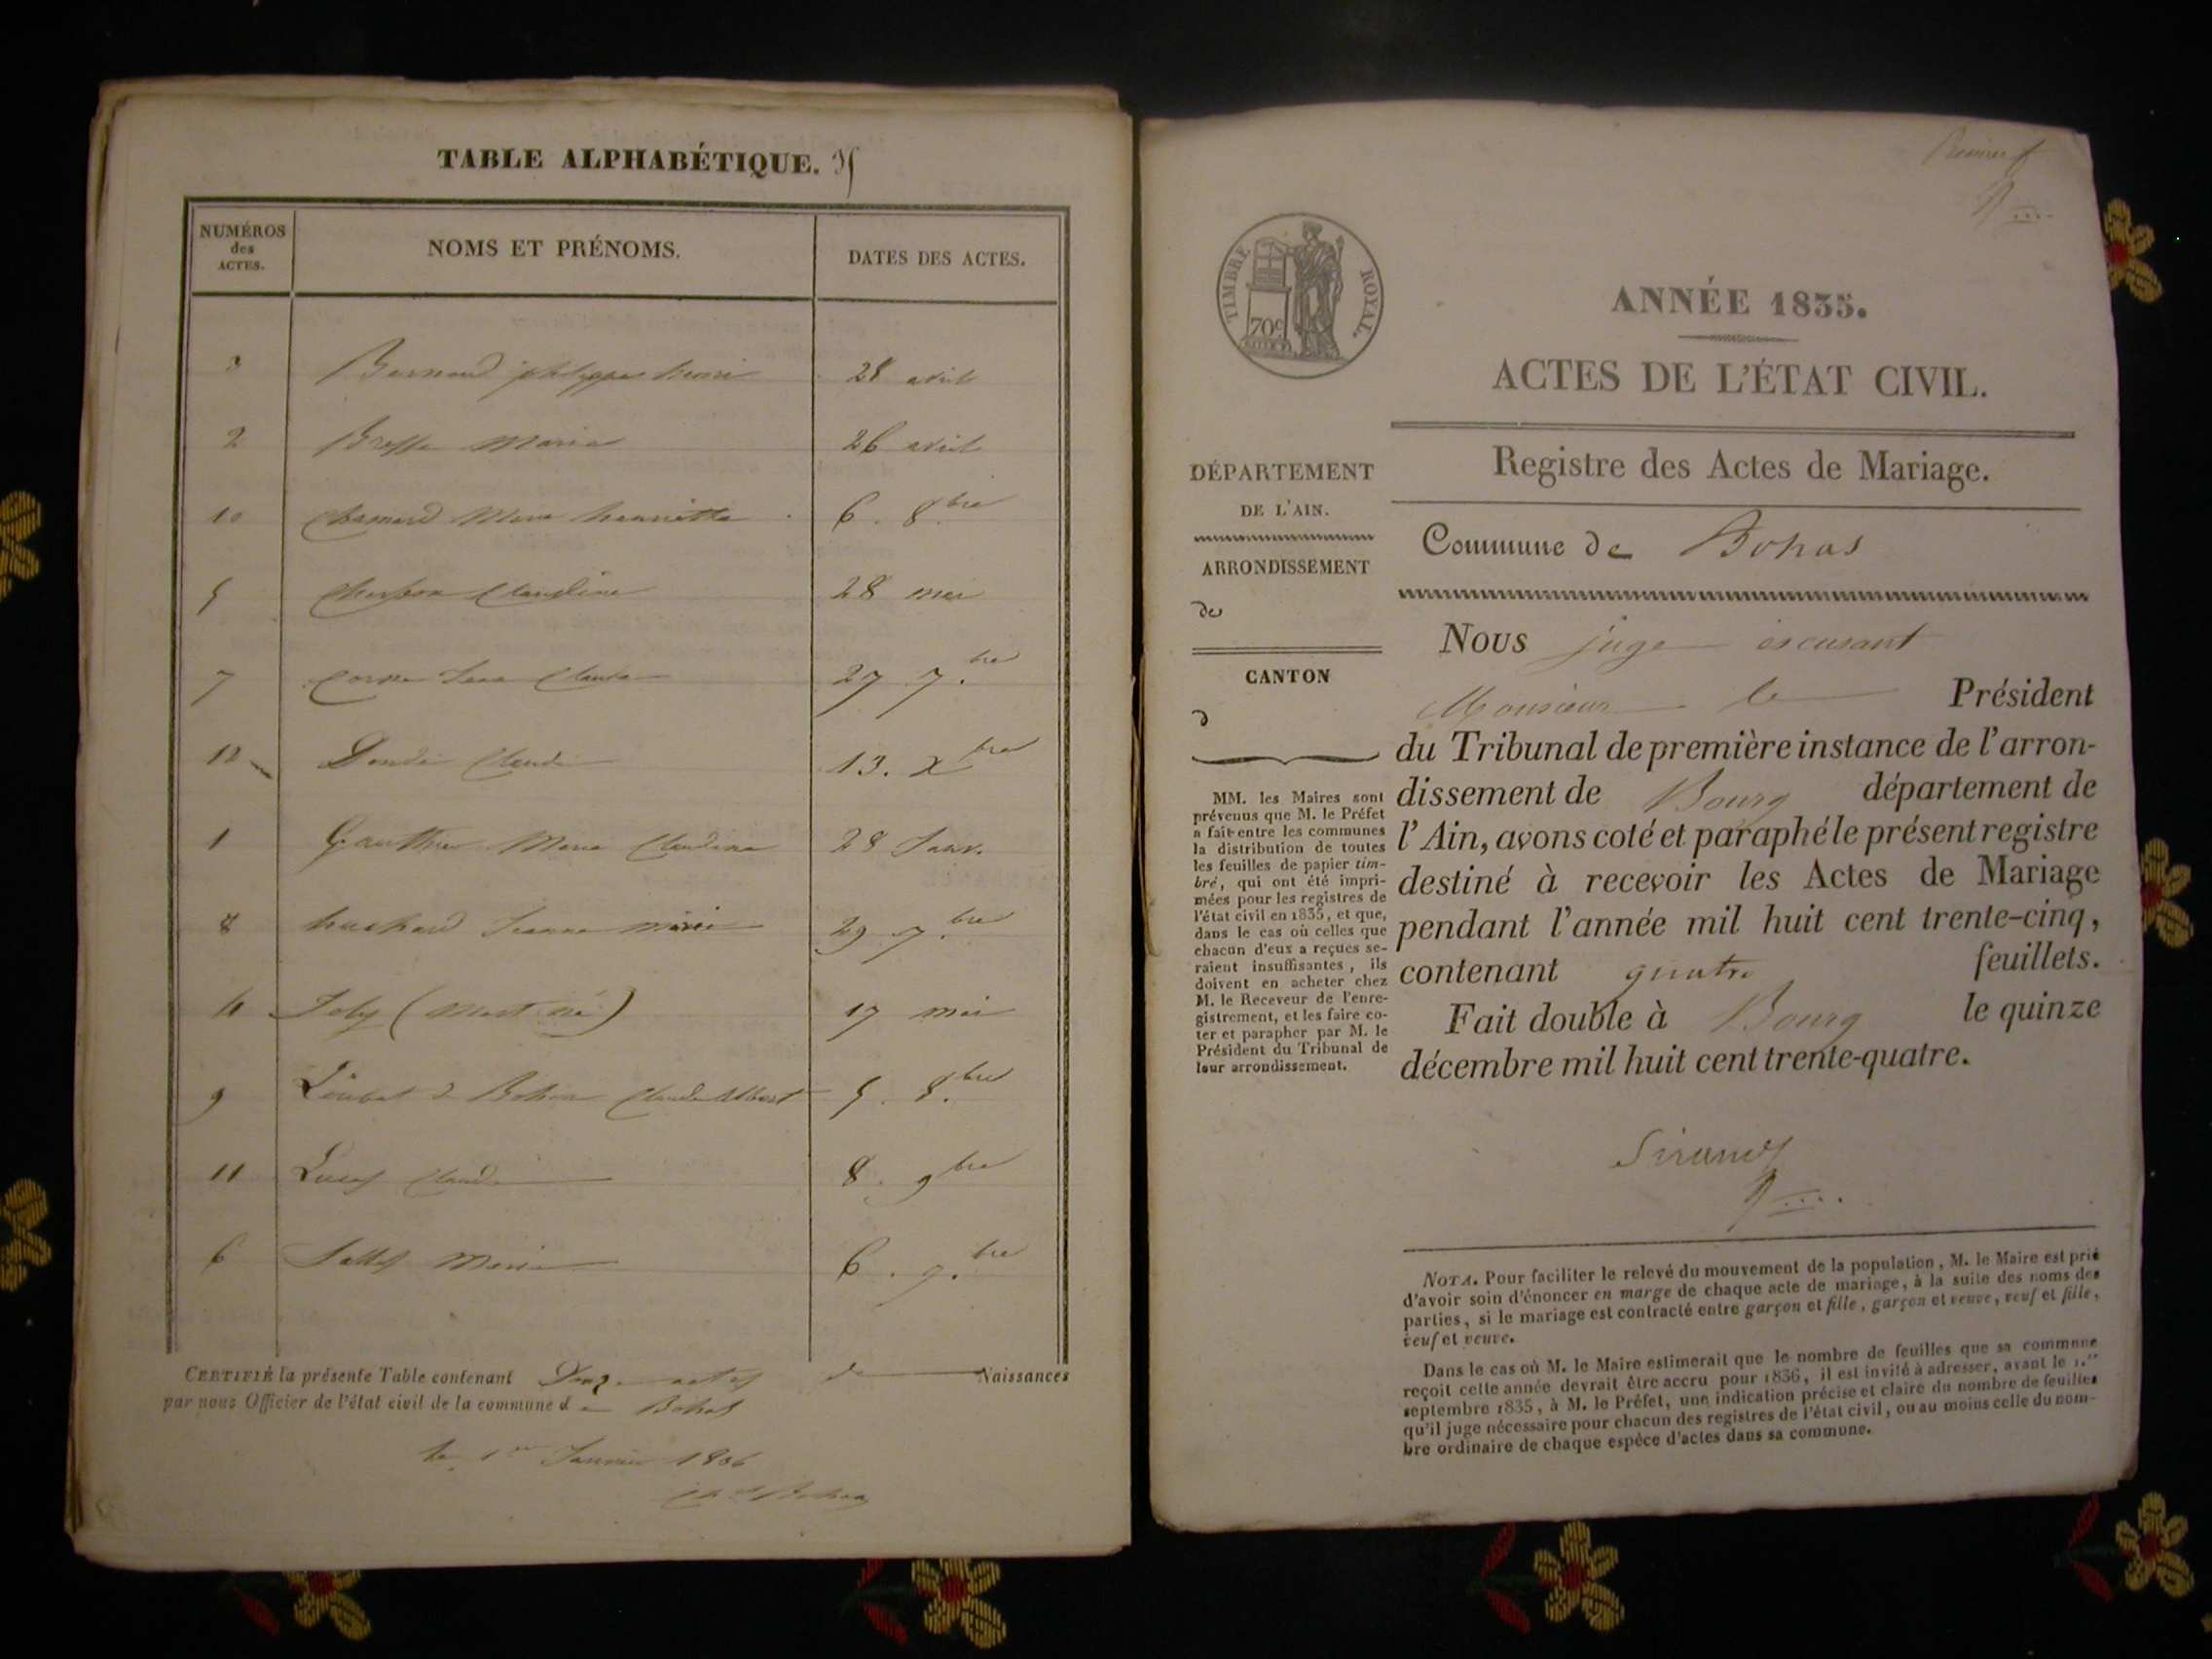 TABLE ALPHABÉTIQUE.
NUMÉROS des ACTES.
NOMS ET PRÉNOMS.
DATES DES ACTES.
3 Bernard philippe henri 28 avril
2 Marie 26 avril
10 Marie henriette 6. 8bre
5 Claudine 28 mai
7 Claude 27 7.bre
12 Claude 13. Xbre
1 Gauthier Marie Claudine 28 Janv.
8 huchard Jeanne Marie 29 7.bre
4 Joly (Mort né) 17 mai
9 Loubat d Bohan Claude Albert 5. 8.bre
11 Claude 8. 9bre
6 Marie 6. 7.bre
CERTIFIÉ la présente Table contenant Douze actes de Naissances
par nous Officier de l'état civil de la commune de Bohas
le 1er Janvier 1836
Premier f
TIMBRE ROYAL.
70c
ANNÉE 1835.
ACTES DE L'ÉTAT CIVIL.
Registre des Actes de Mariage.
DÉPARTEMENT
DE L'AIN.
ARRONDISSEMENT
de
CANTON
d
MM. les Maires sont
prévenus que M. le Préfet
a fait entre les communes
la distribution de toutes
les feuilles de papier tim-
bré, qui ont été impri-
mées pour les registres de
l'état civil en 1835, et que,
dans le cas où celles que
chacun d'eux a reçues se-
raient insuffisantes, ils
doivent en acheter chez
M. le Receveur de l'enre-
gistrement, et les faire co-
ter et parapher par M. le
Président du Tribunal de
leur arrondissement.
Commune de Bohas
Nous juge excusant
Monsieur le Président
du Tribunal de première instance de l'arron-
dissement de Bourg département de
l'Ain, avons coté et paraphé le présent registre
destiné à recevoir les Actes de Mariage
pendant l'année mil huit cent trente-cinq,
contenant quatre feuillets.
Fait double à Bourg le quinze
décembre mil huit cent trente-quatre.
NOTA. Pour faciliter le relevé du mouvement de la population, M. le Maire est prié
d'avoir soin d'énoncer en marge de chaque acte de mariage, à la suite des noms des
parties, si le mariage est contracté entre garçon et fille, garçon et veuve, veuf et fille,
veuf et veuve.
Dans le cas où M. le Maire estimerait que le nombre de feuilles que sa commune
reçoit cette année devrait être accru pour 1836, il est invité à adresser, avant le 1.er
septembre 1835, à M. le Préfet, une indication précise et claire du nombre de feuilles
qu'il juge nécessaire pour chacun des registres de l'état civil, ou au moins celle du nom-
bre ordinaire de chaque espèce d'actes dans sa commune.